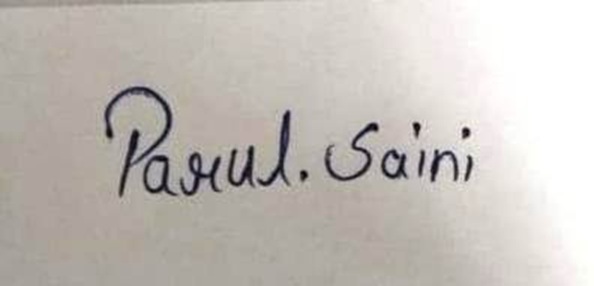 Parul. Saini